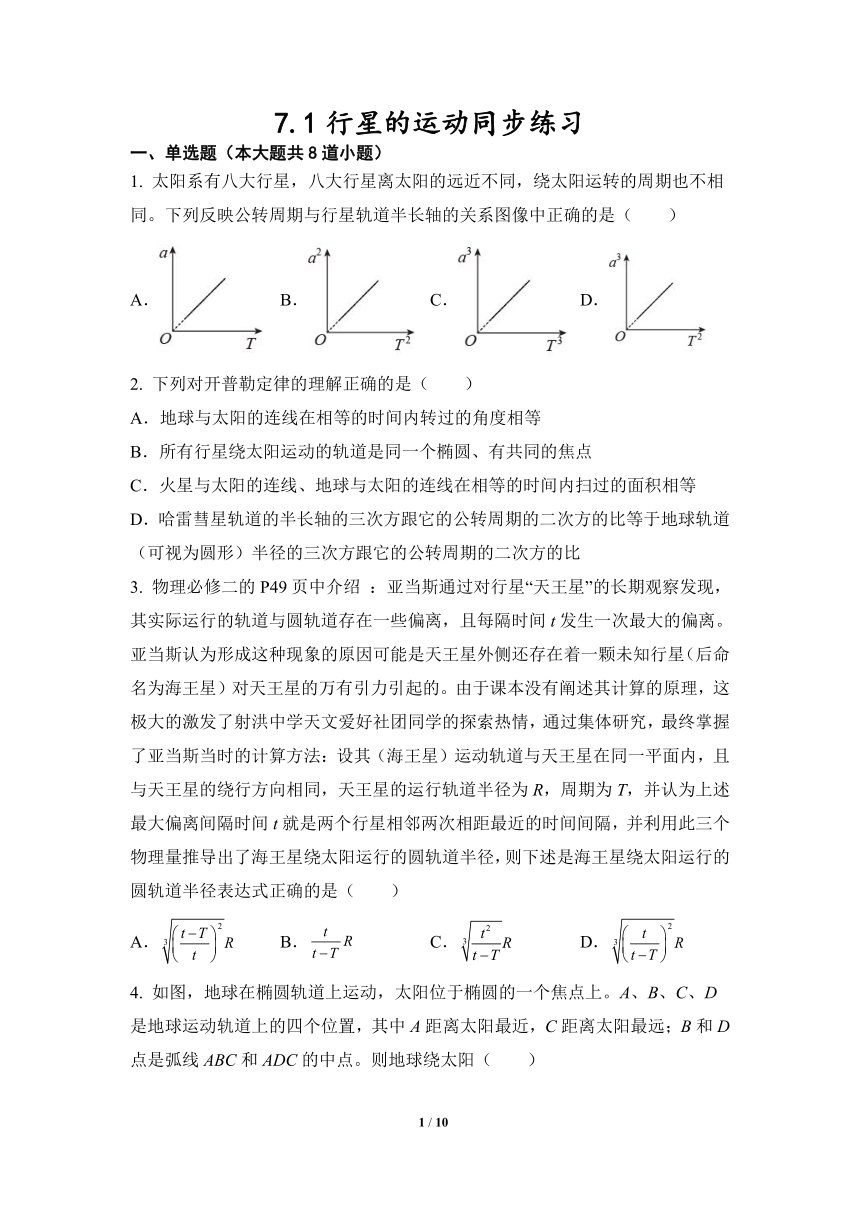 7.1行星的运动同步练习
一、单选题（本大题共8道小题）
1. 太阳系有八大行星，八大行星离太阳的远近不同，绕太阳运转的周期也不相
同。下列反映公转周期与行星轨道半长轴的关系图像中正确的是（　　）
A. a O T B. a² O T² C. a³ O T³ D. a³ O T²
2. 下列对开普勒定律的理解正确的是（　　）
A．地球与太阳的连线在相等的时间内转过的角度相等
B．所有行星绕太阳运动的轨道是同一个椭圆、有共同的焦点
C．火星与太阳的连线、地球与太阳的连线在相等的时间内扫过的面积相等
D．哈雷彗星轨道的半长轴的三次方跟它的公转周期的二次方的比等于地球轨道
（可视为圆形）半径的三次方跟它的公转周期的二次方的比
3. 物理必修二的P49页中介绍 ：亚当斯通过对行星“天王星”的长期观察发现，
其实际运行的轨道与圆轨道存在一些偏离，且每隔时间t发生一次最大的偏离。
亚当斯认为形成这种现象的原因可能是天王星外侧还存在着一颗未知行星（后命
名为海王星）对天王星的万有引力引起的。由于课本没有阐述其计算的原理，这
极大的激发了射洪中学天文爱好社团同学的探索热情，通过集体研究，最终掌握
了亚当斯当时的计算方法：设其（海王星）运动轨道与天王星在同一平面内，且
与天王星的绕行方向相同，天王星的运行轨道半径为R，周期为T，并认为上述
最大偏离间隔时间t就是两个行星相邻两次相距最近的时间间隔，并利用此三个
物理量推导出了海王星绕太阳运行的圆轨道半径，则下述是海王星绕太阳运行的
圆轨道半径表达式正确的是（　　）
A．∛((t−T)/t)² R B．t/(t−T) R C．∛(t²/(t−T)) R D．∛(t/(t−T))² R
4. 如图，地球在椭圆轨道上运动，太阳位于椭圆的一个焦点上。A、B、C、D
是地球运动轨道上的四个位置，其中A距离太阳最近，C距离太阳最远；B和D
点是弧线ABC和ADC的中点。则地球绕太阳（　　）
1 / 10